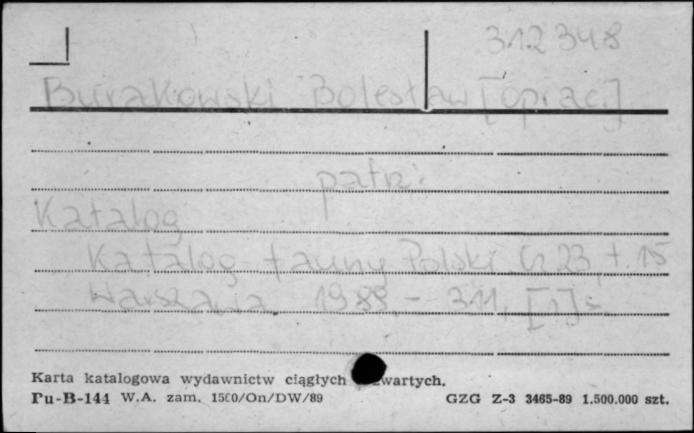 312348
Burakowski Bolesław [oprac.]
patrz:
Katalog
Katalog fauny Polski Cz 23, t. 15
Warszawa 1988, - 311, [1] s.
Karta katalogowa wydawnictw ciągłych zwartych.
Pu-B-144 W.A. zam. 1500/On/DW/89 GZG Z-3 3465-89 1.500.000 szt.